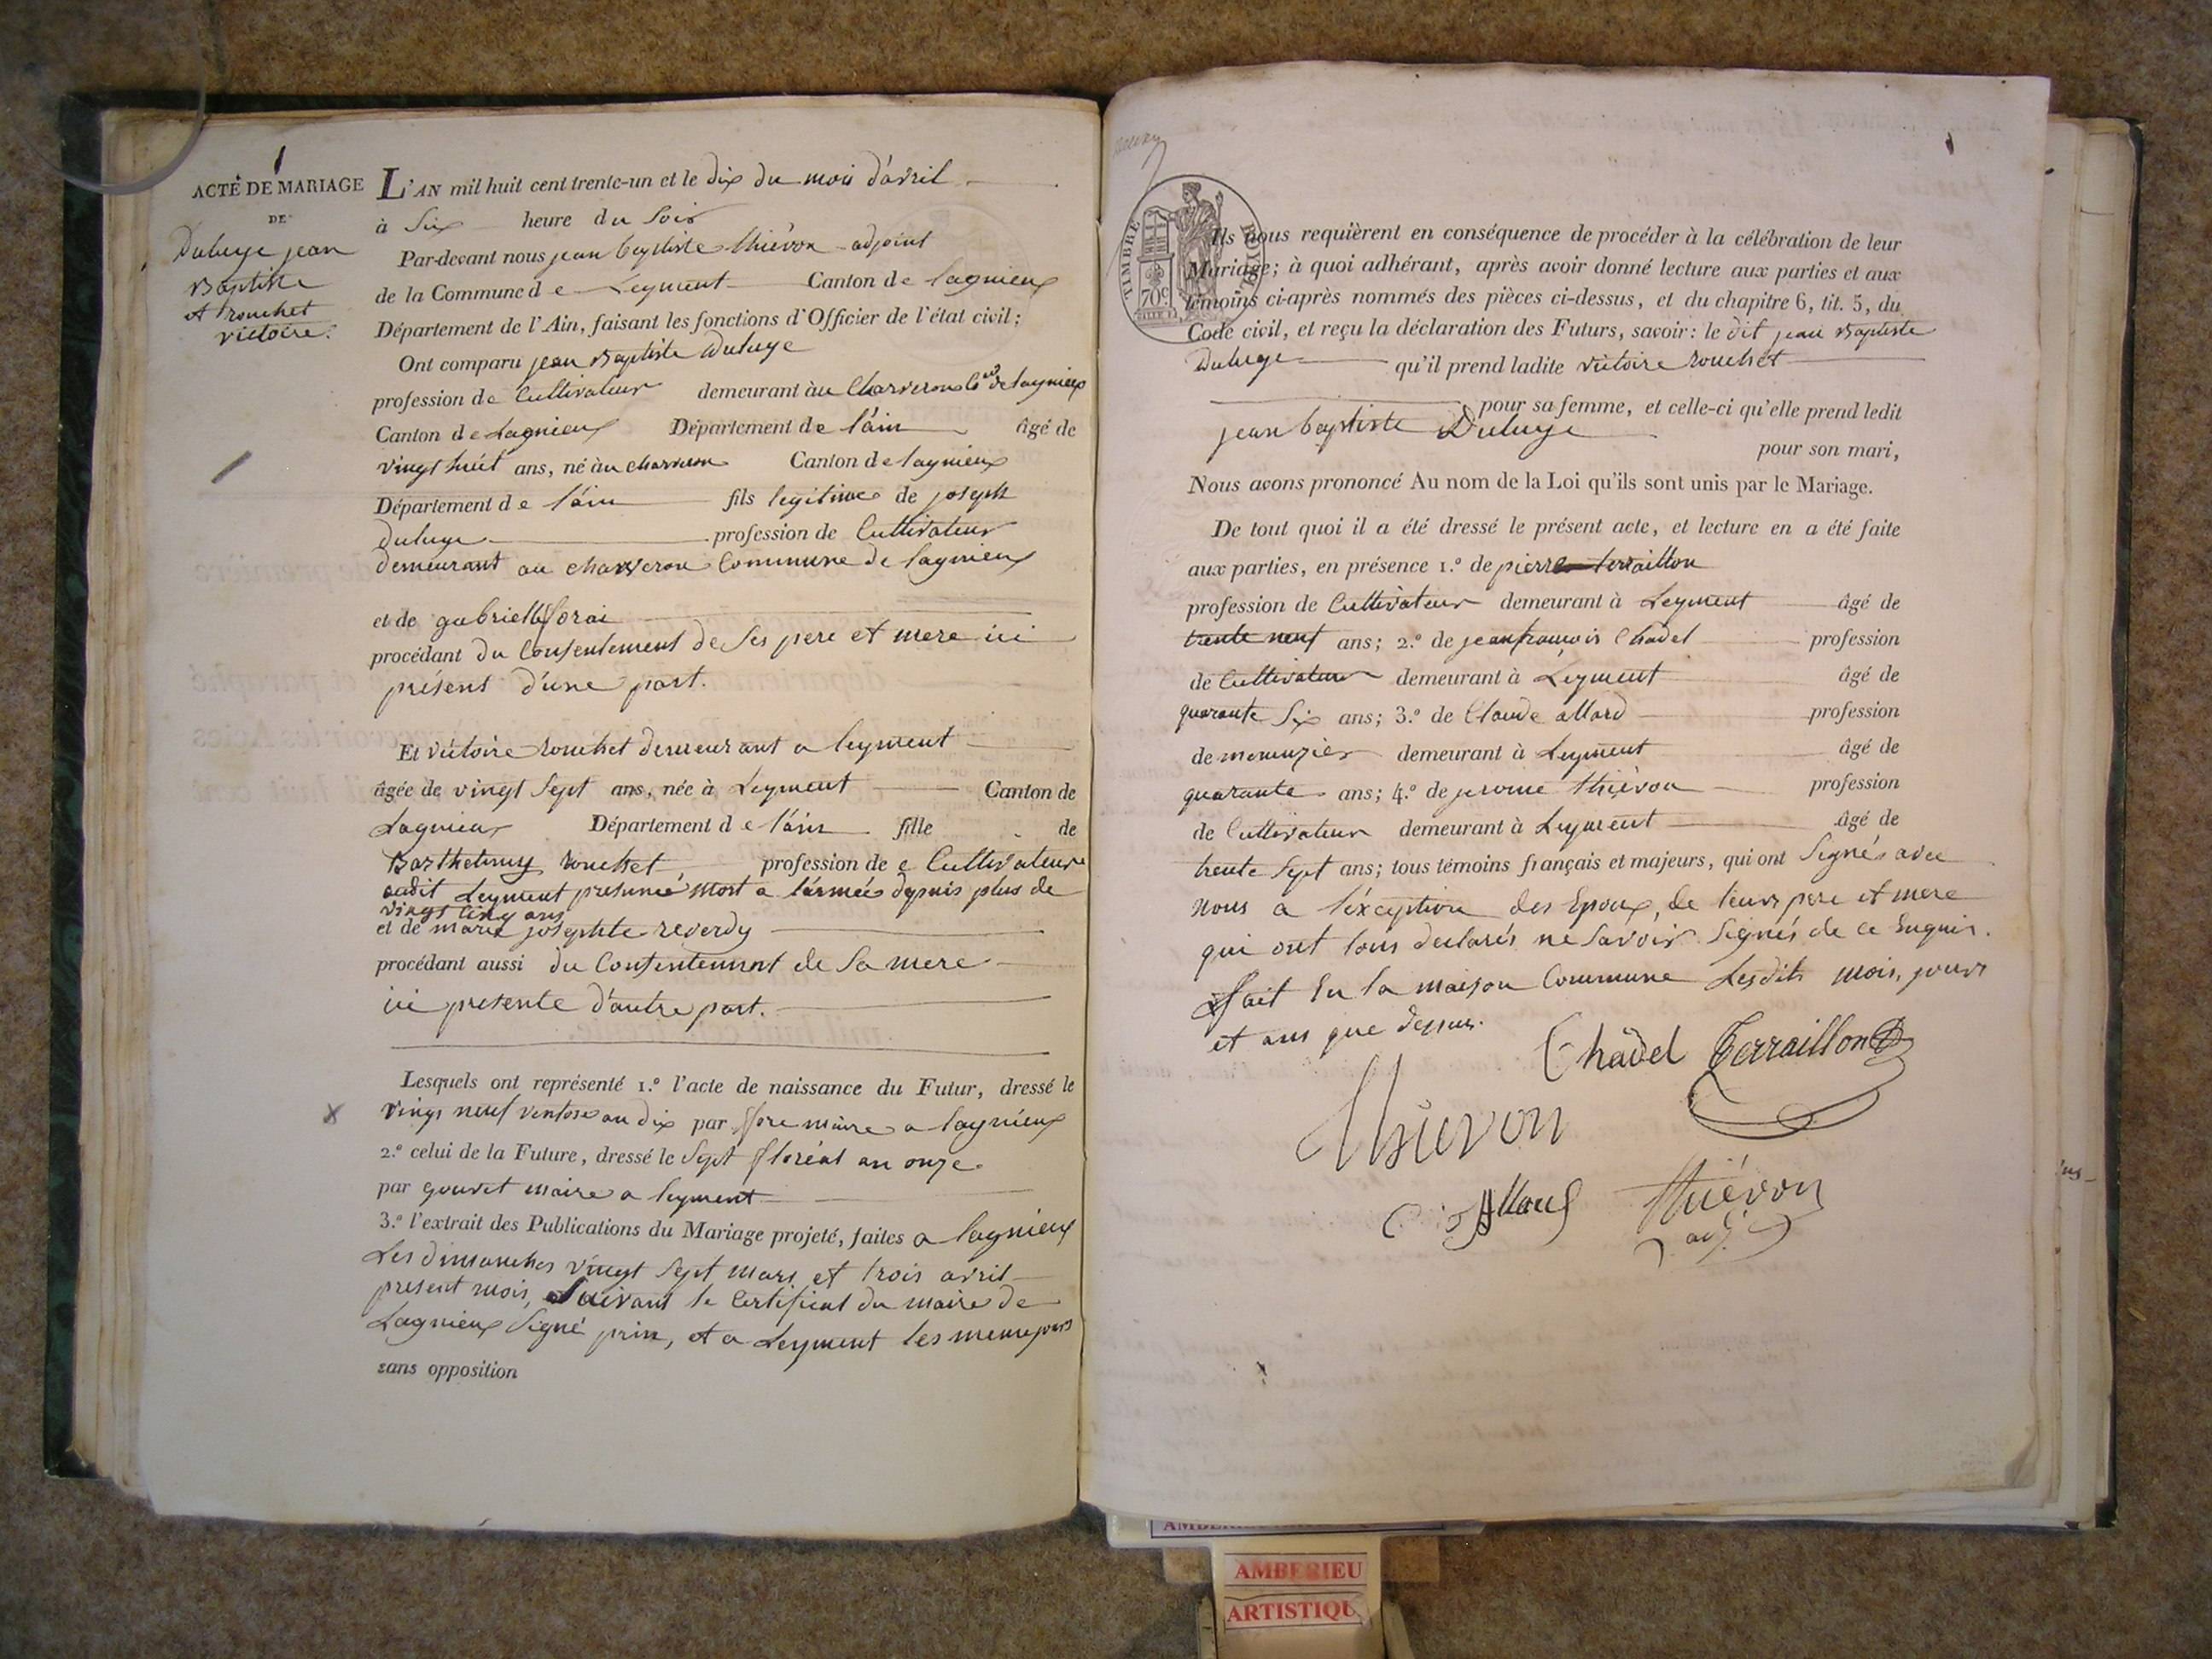 ACTE DE MARIAGE
DE
Duluye jean
Baptiste
et rouchet
victoire.
L'AN mil huit cent trente-un et le dix du mois d'avril
à Six heure du Soir
Par-devant nous jean baptiste thiévon adjoint
de la Commune de Leyment Canton de lagnieux
Département de l'Ain, faisant les fonctions d'Officier de l'état civil;
Ont comparu jean Baptiste Duluye
profession de Cultivateur demeurant àu Charveron Cne de lagnieux
Canton de Lagnieux Département de l'ain âgé de
vingt huit ans, né àu charveron Canton de lagnieux
Département de l'ain fils legitime de joseph
duluye profession de Cultivateur
demeurant au charveron Commune de lagnieux
et de gabrielle forai
procédant du Consentement de Ses pere et mere ici
présent d'une part.
Et victoire rouchet demeurant a leyment
âgée de vingt Sept ans, née à Leyment Canton de
Lagnieux Département de l'ain fille de
Barthelemy rouchet profession de Cultivateur
audit Leyment presumé mort a l'armée depuis plus de
vingt cinq ans
et de marie josephte reverdy
procédant aussi du Consentement de Sa mere
ici presente d'autre part.
Lesquels ont représenté 1.º l'acte de naissance du Futur, dressé le
vingt neuf ventose an dix par maire a lagnieux
2.º celui de la Future, dressé le Sept floréal an onze
par gouvet maire a leyment
3.º l'extrait des Publications du Mariage projeté, faites a lagnieux
Les dimanches vingt Sept mars et trois avril
present mois, Suivant le Certificat du maire de
Lagnieux Signé prin, et a Leyment les meme jours
sans opposition
TIMBRE ROYAL
70c
Ils nous requièrent en conséquence de procéder à la célébration de leur
Mariage; à quoi adhérant, après avoir donné lecture aux parties et aux
témoins ci-après nommés des pièces ci-dessus, et du chapitre 6, tit. 5, du
Code civil, et reçu la déclaration des Futurs, savoir: le dit jean Baptiste
Duluye qu'il prend ladite victoire rouchet
pour sa femme, et celle-ci qu'elle prend ledit
jean baptiste Duluye
pour son mari,
Nous avons prononcé Au nom de la Loi qu'ils sont unis par le Mariage.
De tout quoi il a été dressé le présent acte, et lecture en a été faite
aux parties, en présence 1.º de pierre terraillon
profession de Cultivateur demeurant à Leyment âgé de
trente neuf ans; 2.º de jean francois Chadel profession
de Cultivateur demeurant à Leyment âgé de
quarante Six ans; 3.º de Claude allard profession
de menuzier demeurant à Leyment âgé de
quarante ans; 4.º de jerome thiévon profession
de Cultivateur demeurant à Leyment âgé de
trente Sept ans; tous témoins français et majeurs, qui ont Signés avec
nous a l'éxception des Epoux, de leurs pere et mere
qui ont tous declarés ne Savoir Signés de ce Enquis.
fait En la maison Commune Lesdits mois, jours
et ans que dessus.
Chadel Terraillon
Thievon
Allard Thiévon
adj.
AMBERIEU
ARTISTIQU